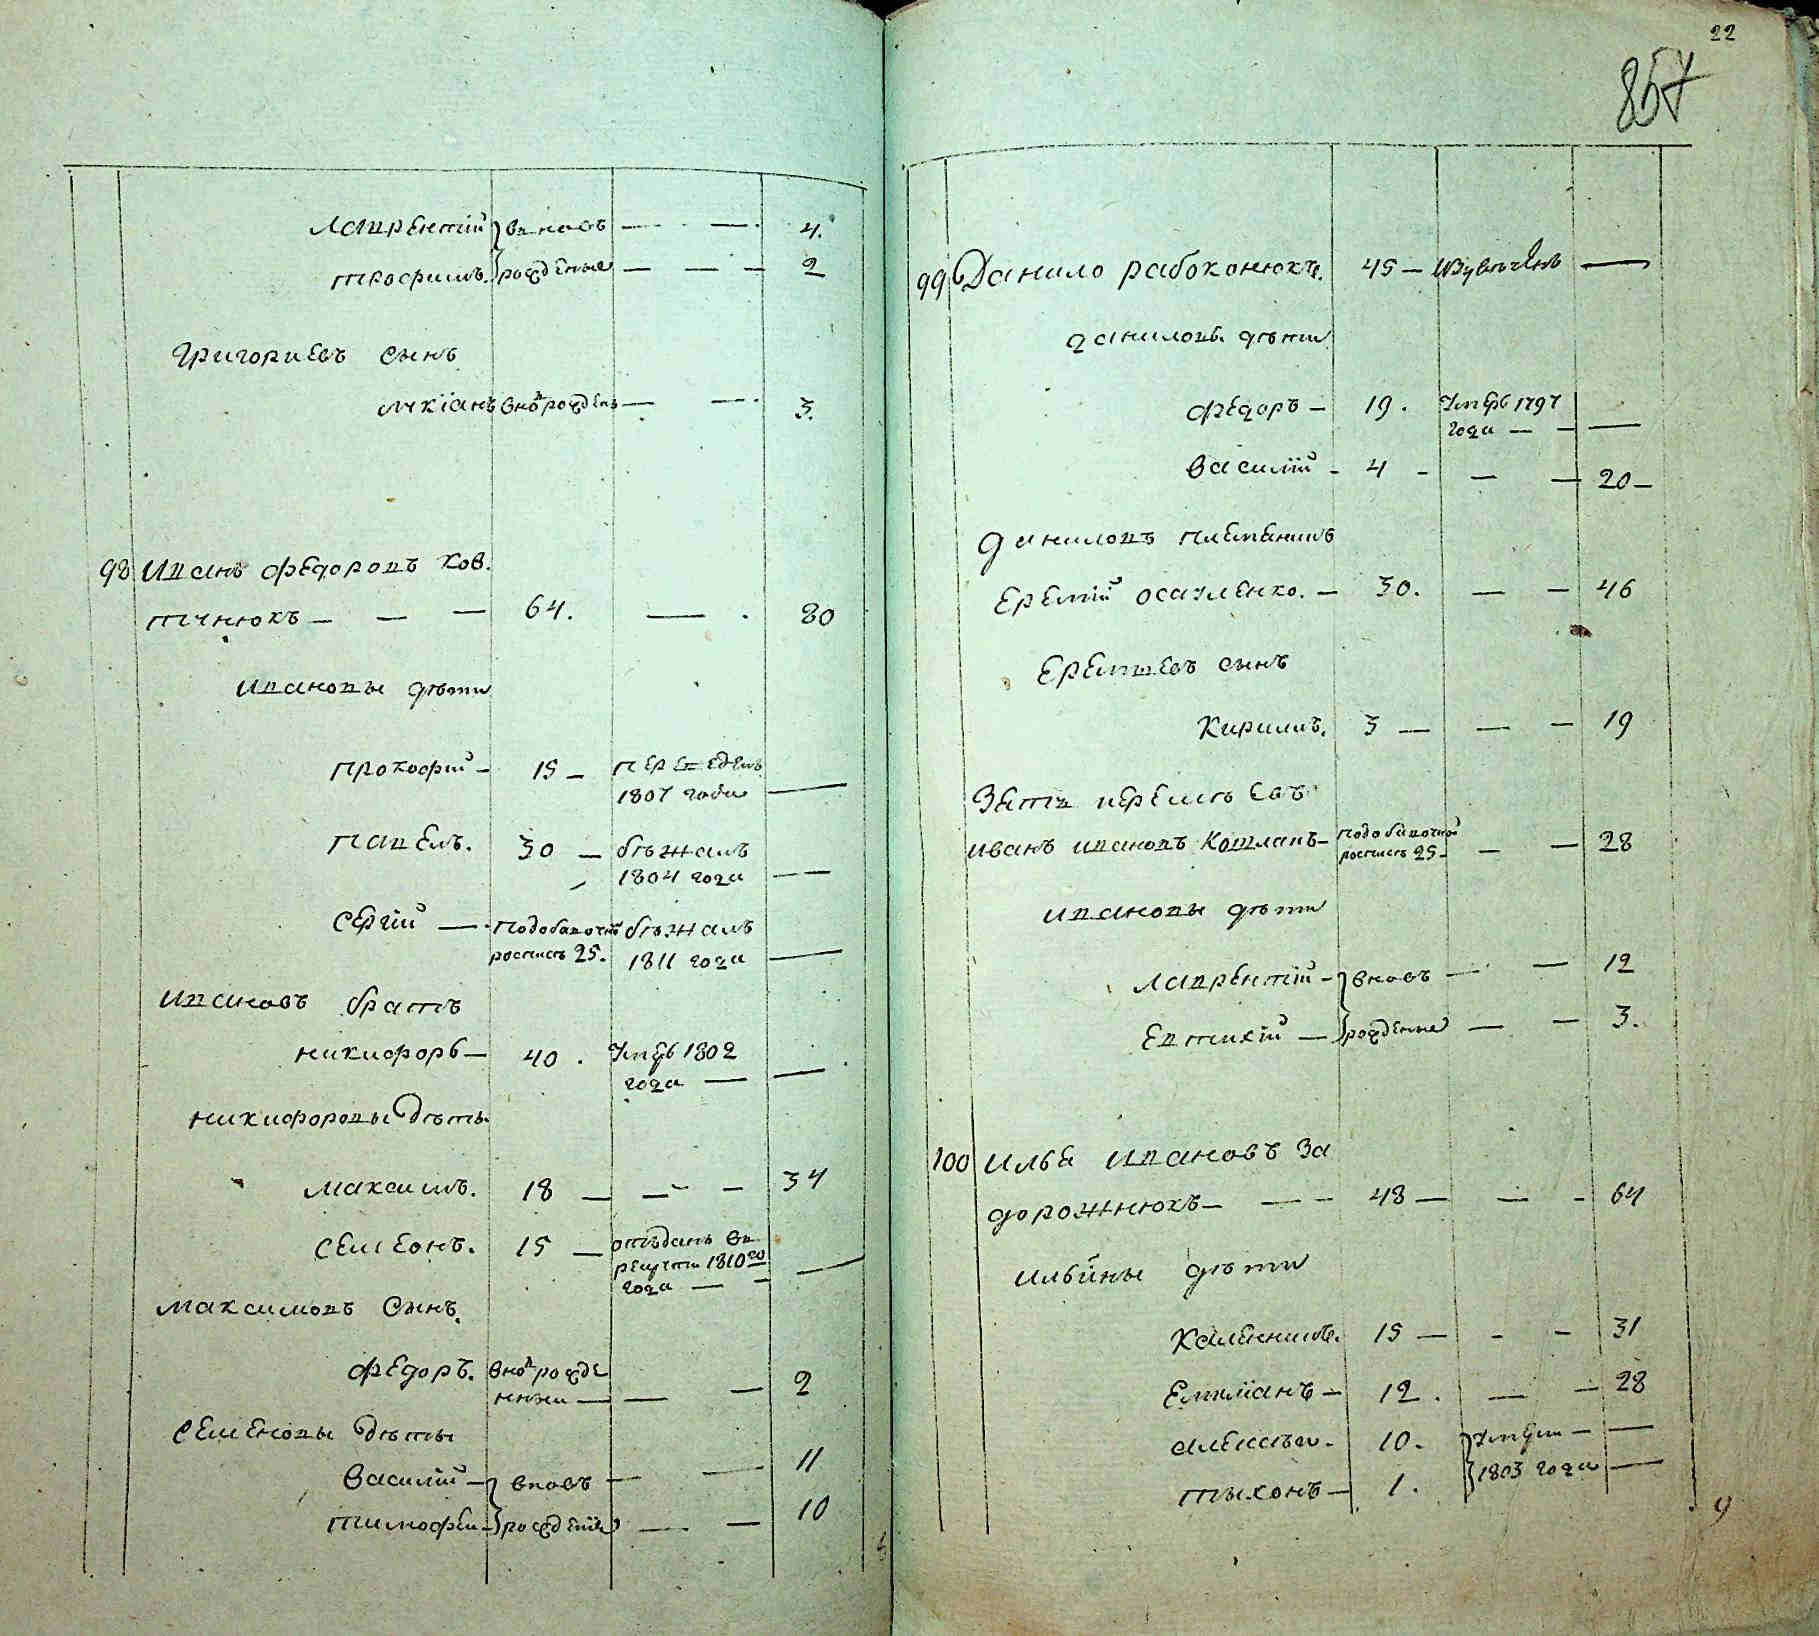 Лаврентій } вновь — — 4.
Трофимъ. } рожденые — — — 2
Григориевъ сынъ
Лукіанъ вновь рожденъ — — 3.
98 Иванъ Федоровъ Ков.
тунюкъ — — — 64. — 80
Ивановы дѣти
Прокофий — 15 —
1807 года —
Павелъ. 30 — бѣжалъ
1804 года —
Сергій — подобавочной бѣжалъ
росписѣ 25. 1811 года —
Ивановъ братъ
Никифоръ — 40. умеръ 1802
года — —
Никифоровы дѣты.
Максимъ. 18 — — — 34
Семеонъ. 15 — отъданъ въ
рекруты 1810го
года — — —
Максимовъ сынъ
Федоръ. вновь рожде
нный — — — 2
Семеновы дѣты
Василій — } вновь — — 11
Тимофѣй — } рожденые — — 10
22
857
99 Данило рабоконюкъ. 45 — —
Даниловы дѣти
Федоръ — 19. умеръ 1797
года — — —
Василій — 4 — — — 20 —
Даниловъ племенникъ
Еремій Осауленко. — 30. — — 46
Еремѣевъ сынъ
Кирилъ. 3 — — — 19
Зять Иеремѣевъ
Иванъ Ивановъ Котланъ — подобавочной
росписѣ 25 — — — 28
Ивановы дѣти
Лаврентій — } вновь — — 12
Евтихій — } рожденые — — 3.
100 Илья Ивановъ За
дорожнюкъ — — — 48 — — — 64
Ильины дѣти
Каленникъ. 15 — — — 31
Емилианъ — 12. — — 28
Алексѣй. 10. } умерли — —
Тыхонъ — 1. } 1803 года —
9